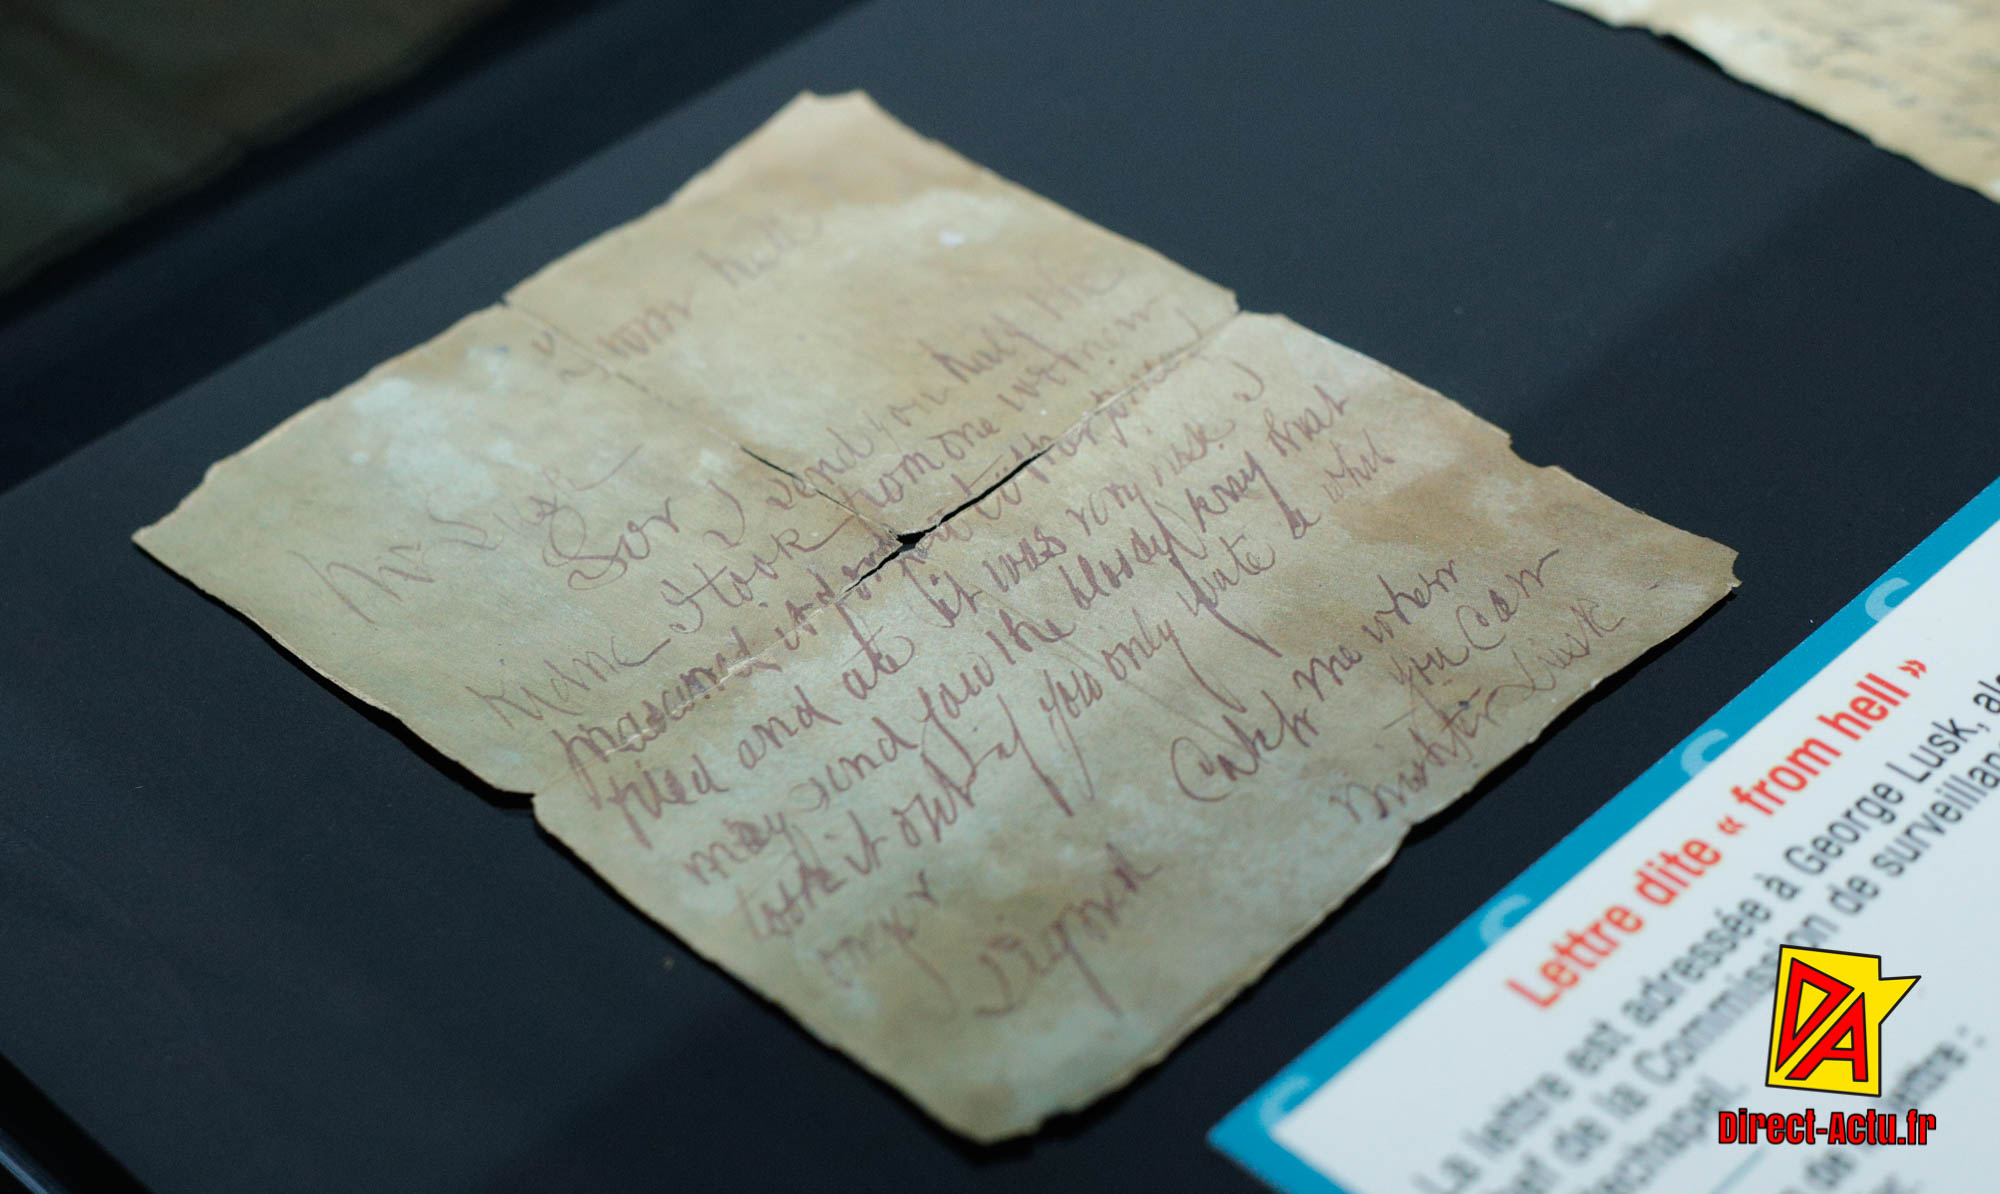 From hell
Mr Lusk
Sor I send you half the
Kidne I took from one women
prasarved it for you tother piece I
fried and ate it was very nise I
may send you the bloody knif that
took it out if you only wate a whil
longer
signed
Catch me when
you Can
Mishter Lusk
Lettre dite « from hell »
La lettre est adressée à George Lusk, al
ef de la Commission de surveillan
echapel.
lettre :
DA
Direct-Actu.fr